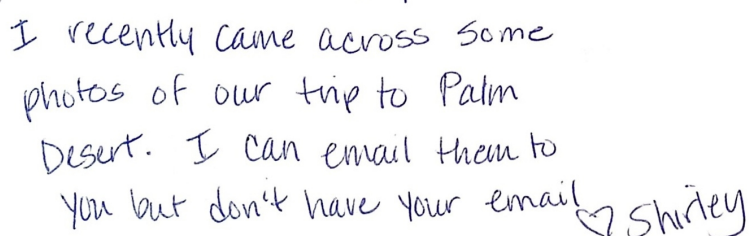 I recently came across some
photos of our trip to Palm
Desert. I can email them to
you but don't have your email
♡ Shirley